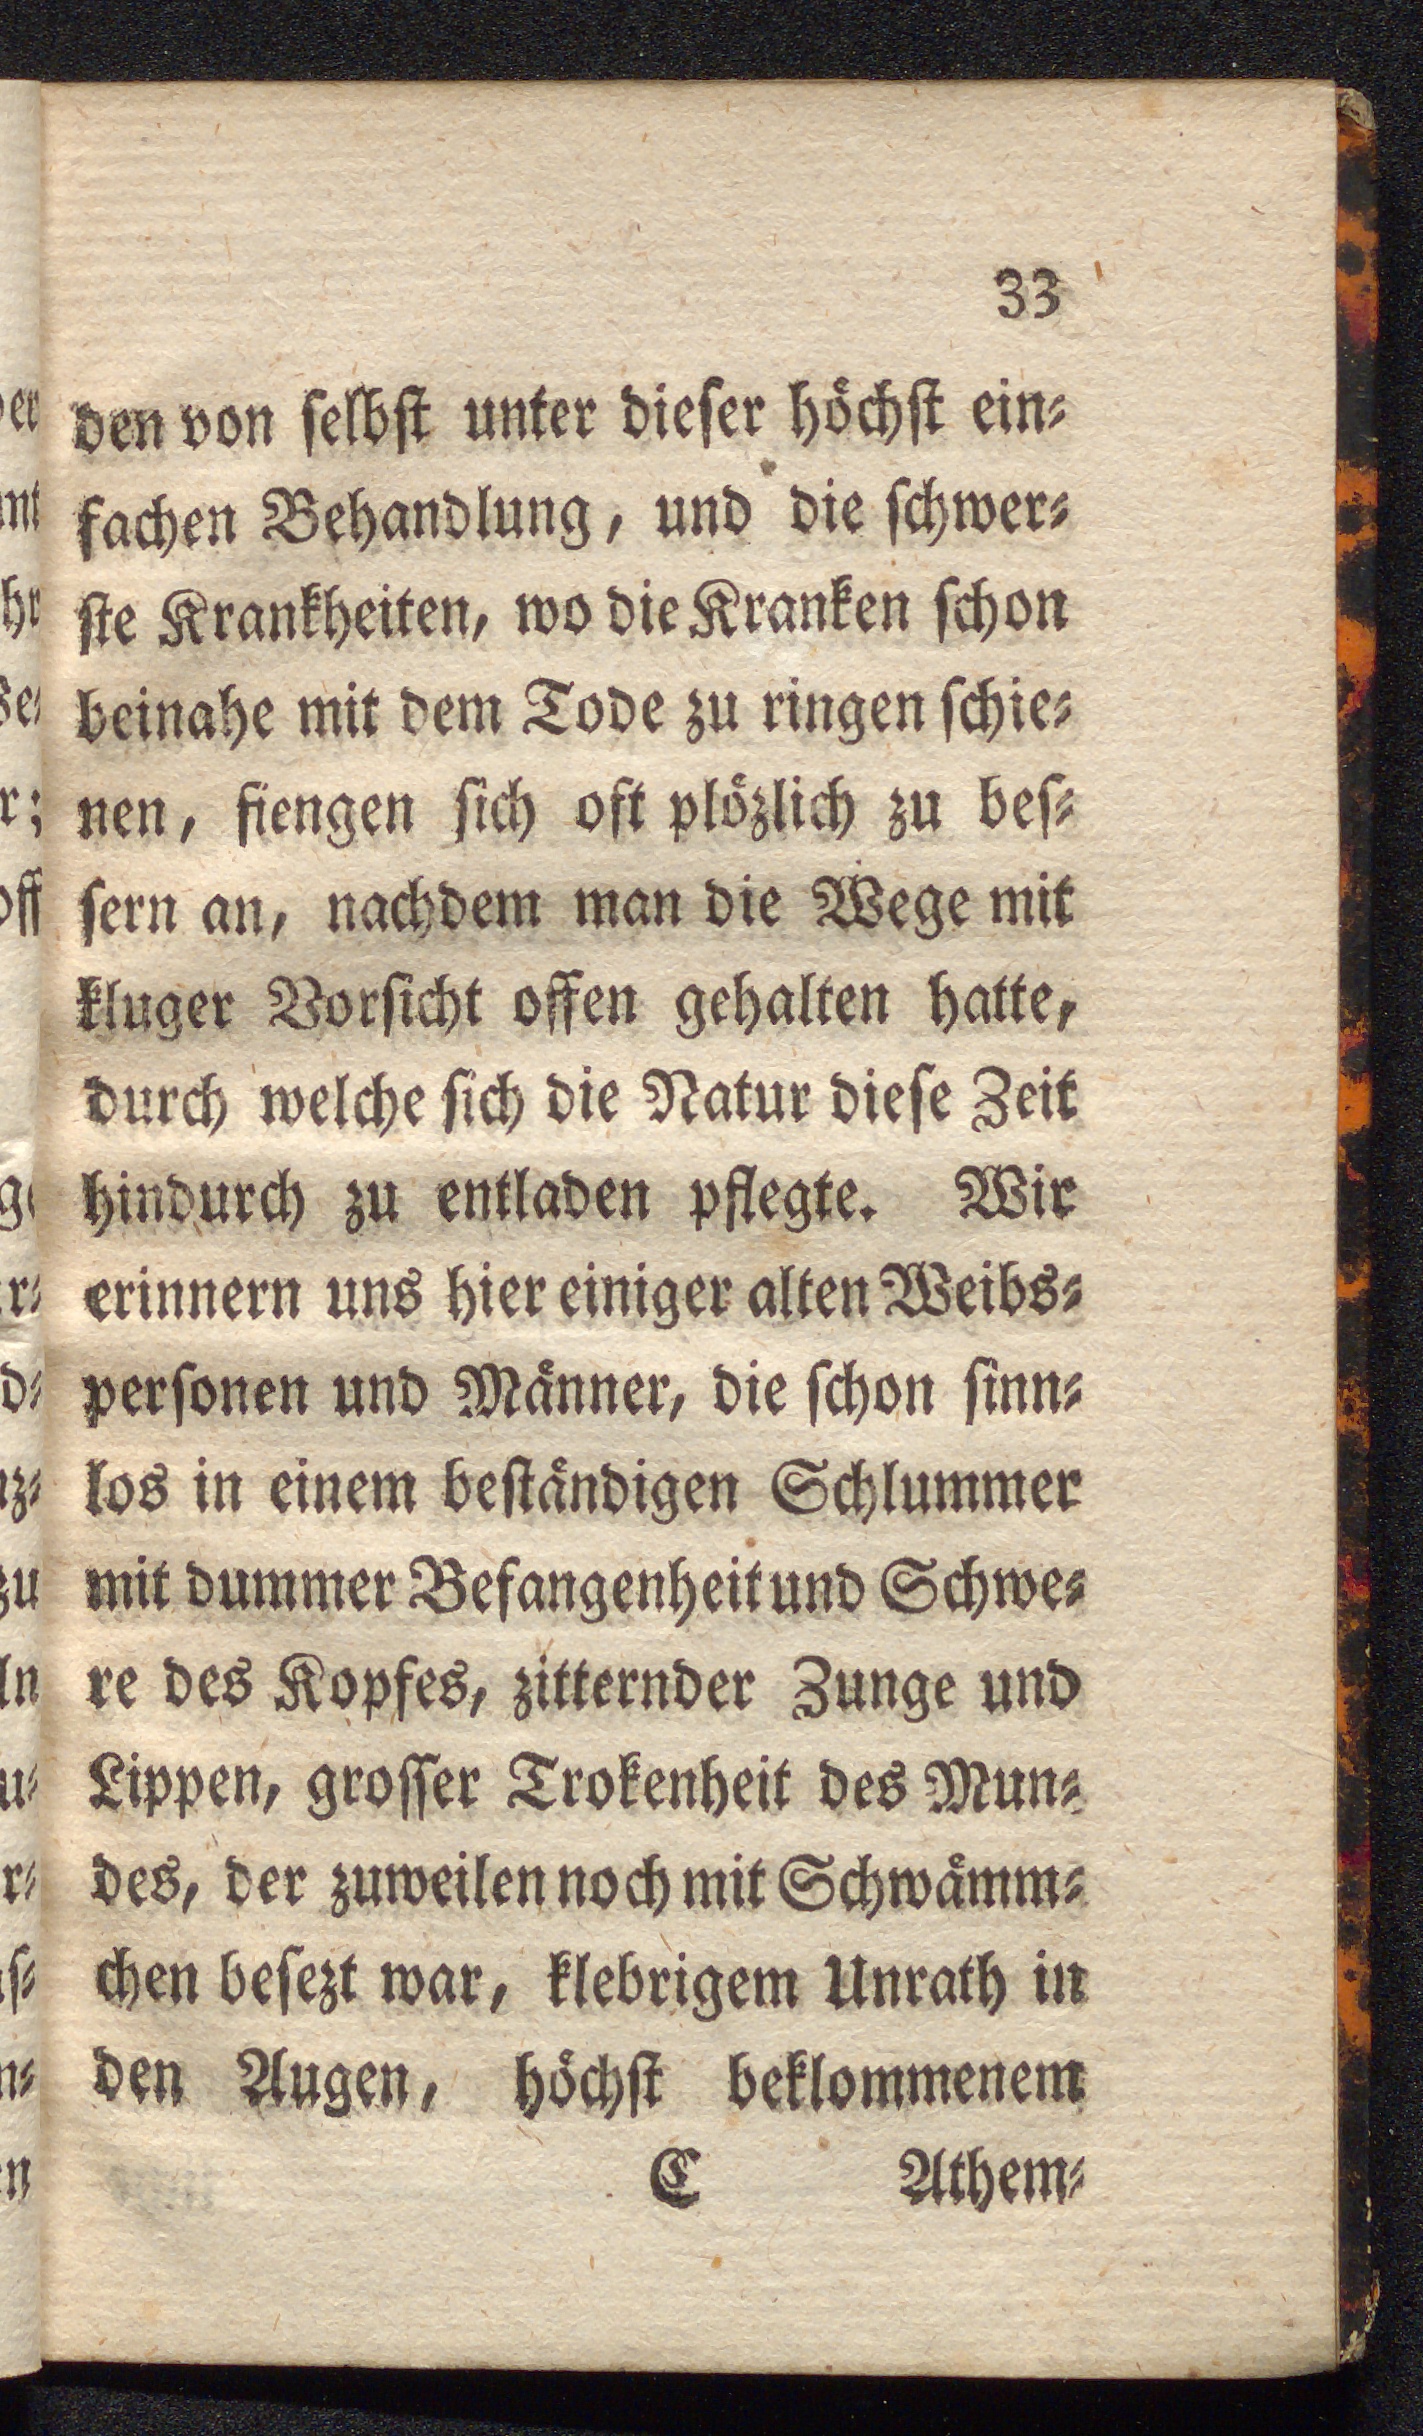 33
den von ſelbſt unter dieſer höchſt ein⸗
fachen Behandlung, und die ſchwer⸗
ſte Krankheiten, wo die Kranken ſchon
beinahe mit dem Tode zu ringen ſchie⸗
nen, fiengen ſich oft plözlich zu beſ⸗
ſern an, nachdem man die Wege mit
kluger Vorſicht offen gehalten hatte,
durch welche ſich die Natur dieſe Zeit
hindurch zu entladen pflegte. Wir
erinnern uns hier einiger alten Weibs⸗
perſonen und Männer, die ſchon ſinn⸗
los in einem beſtändigen Schlummer
mit dummer Befangenheit und Schwe⸗
re des Kopfes, zitternder Zunge und
Lippen, groſſer Trokenheit des Mun⸗
des, der zuweilen noch mit Schwämm⸗
chen beſezt war, klebrigem Unrath in
den Augen, höchſt beklommenem
C Athem⸗